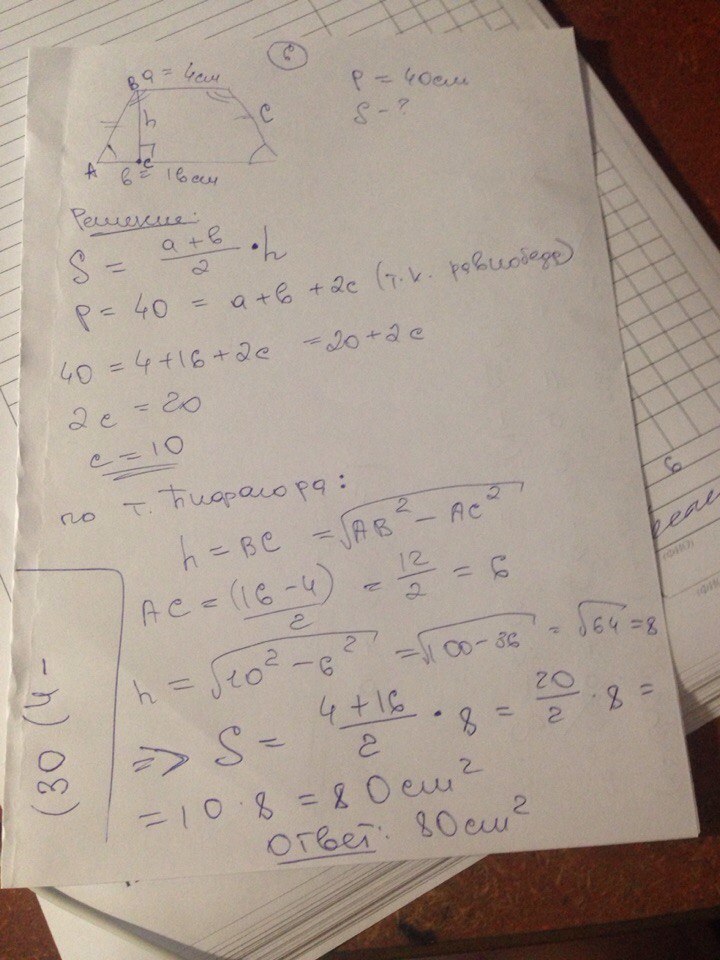 6
B a = 4см
P = 40см
S - ?
h
C
A
C
в = 16см
Решение:
S = a+в/2 • h
P = 40 = a+в+2c (т.к. равнобедр)
40 = 4+16+2c = 20+2c
2c = 20
c = 10
по т. Пифагора:
h = BC = √AB² - AC²
AC = (16-4)/2 = 12/2 = 6
h = √10² - 6² = √100-36 = √64 = 8
=> S = 4+16/2 • 8 = 20/2 · 8 =
= 10 · 8 = 80см²
Ответ: 80см²
(30 (4-